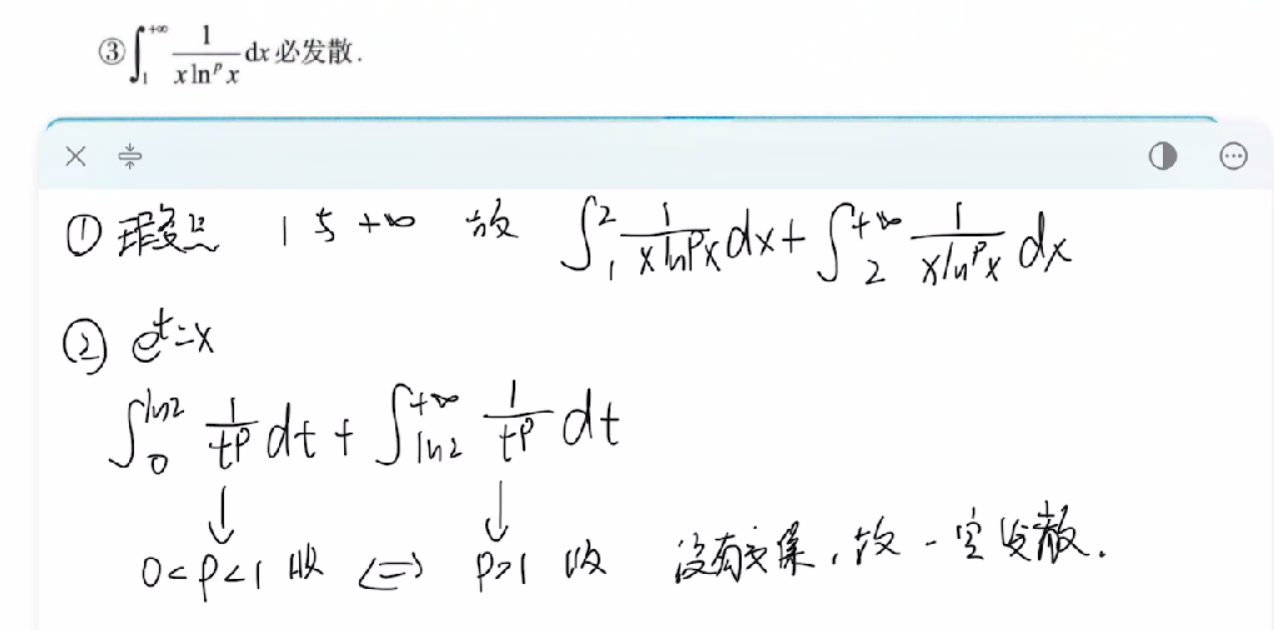 ③ ∫₁^{+∞} 1/(x ln^p x) dx 必发散.
① 瑕点 1 与 +∞ 故 ∫₁² 1/(x ln^p x) dx + ∫₂^{+∞} 1/(x ln^p x) dx
② e^t = x
∫₀^{ln2} 1/t^p dt + ∫_{ln2}^{+∞} 1/t^p dt
↓ ↓
0<p<1 收 <=> p>1 收 没有交集,故一定发散.